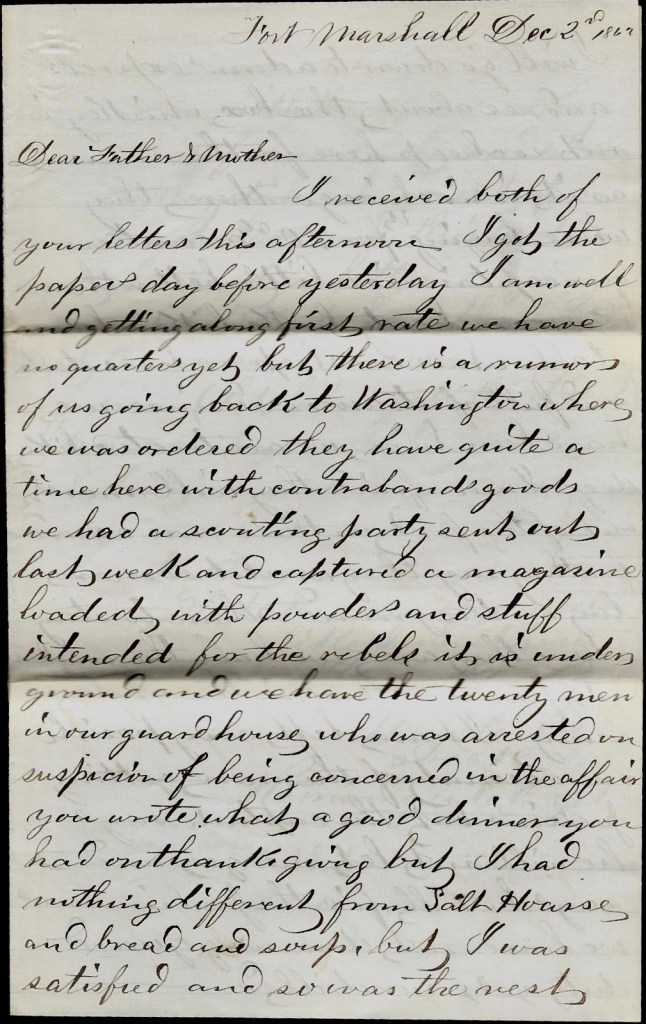 Fort Marshall Dec 2nd 1862
Dear Father & Mother
I received both of
your letters this afternoon I got the
paper day before yesterday I am well
and getting along first rate we have
no quarters yet but there is a rumor
of us going back to Washington where
we was ordered they have quite a
time here with contraband goods
we had a scouting party sent out
last week and captured a magazine
loaded with powder and stuff
intended for the rebels it is under
ground and we have the twenty men
in our guard house who was arrested on
suspicion of being concerned in the affair
you wrote what a good dinner you
had on thanksgiving but I had
nothing different from Salt Hoarse
and bread and soup, but I was
satisfied and so was the rest